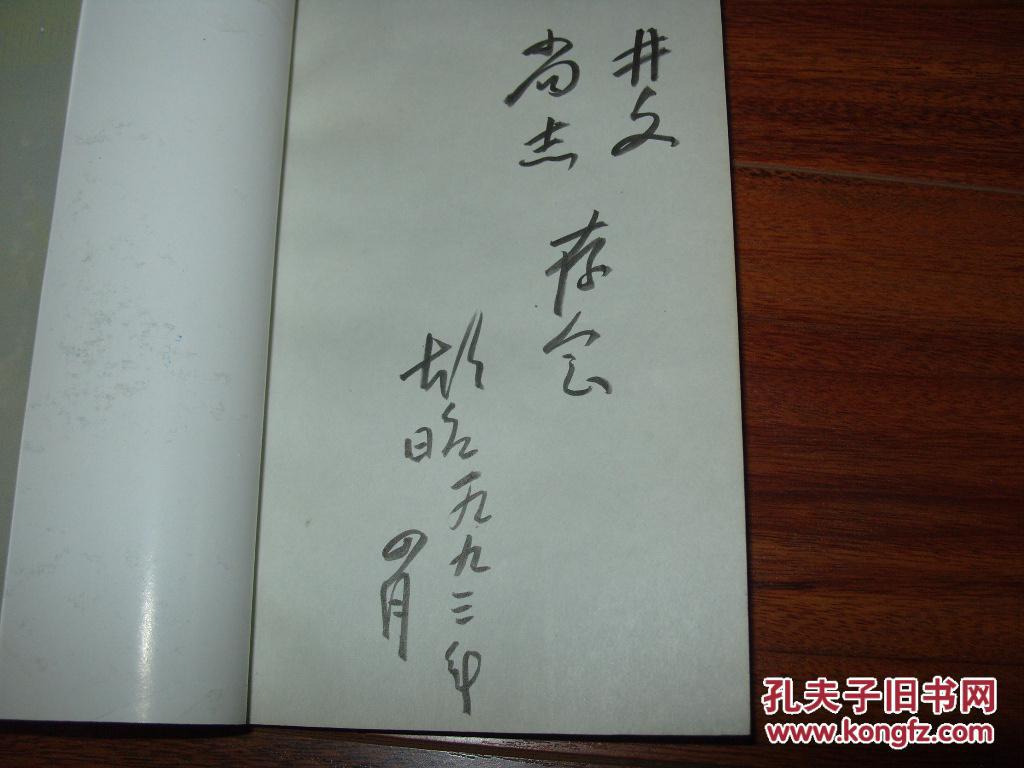 井文
尚志
存念
胡昭
一九九二年
四月
孔夫子旧书网
www.kongfz.com